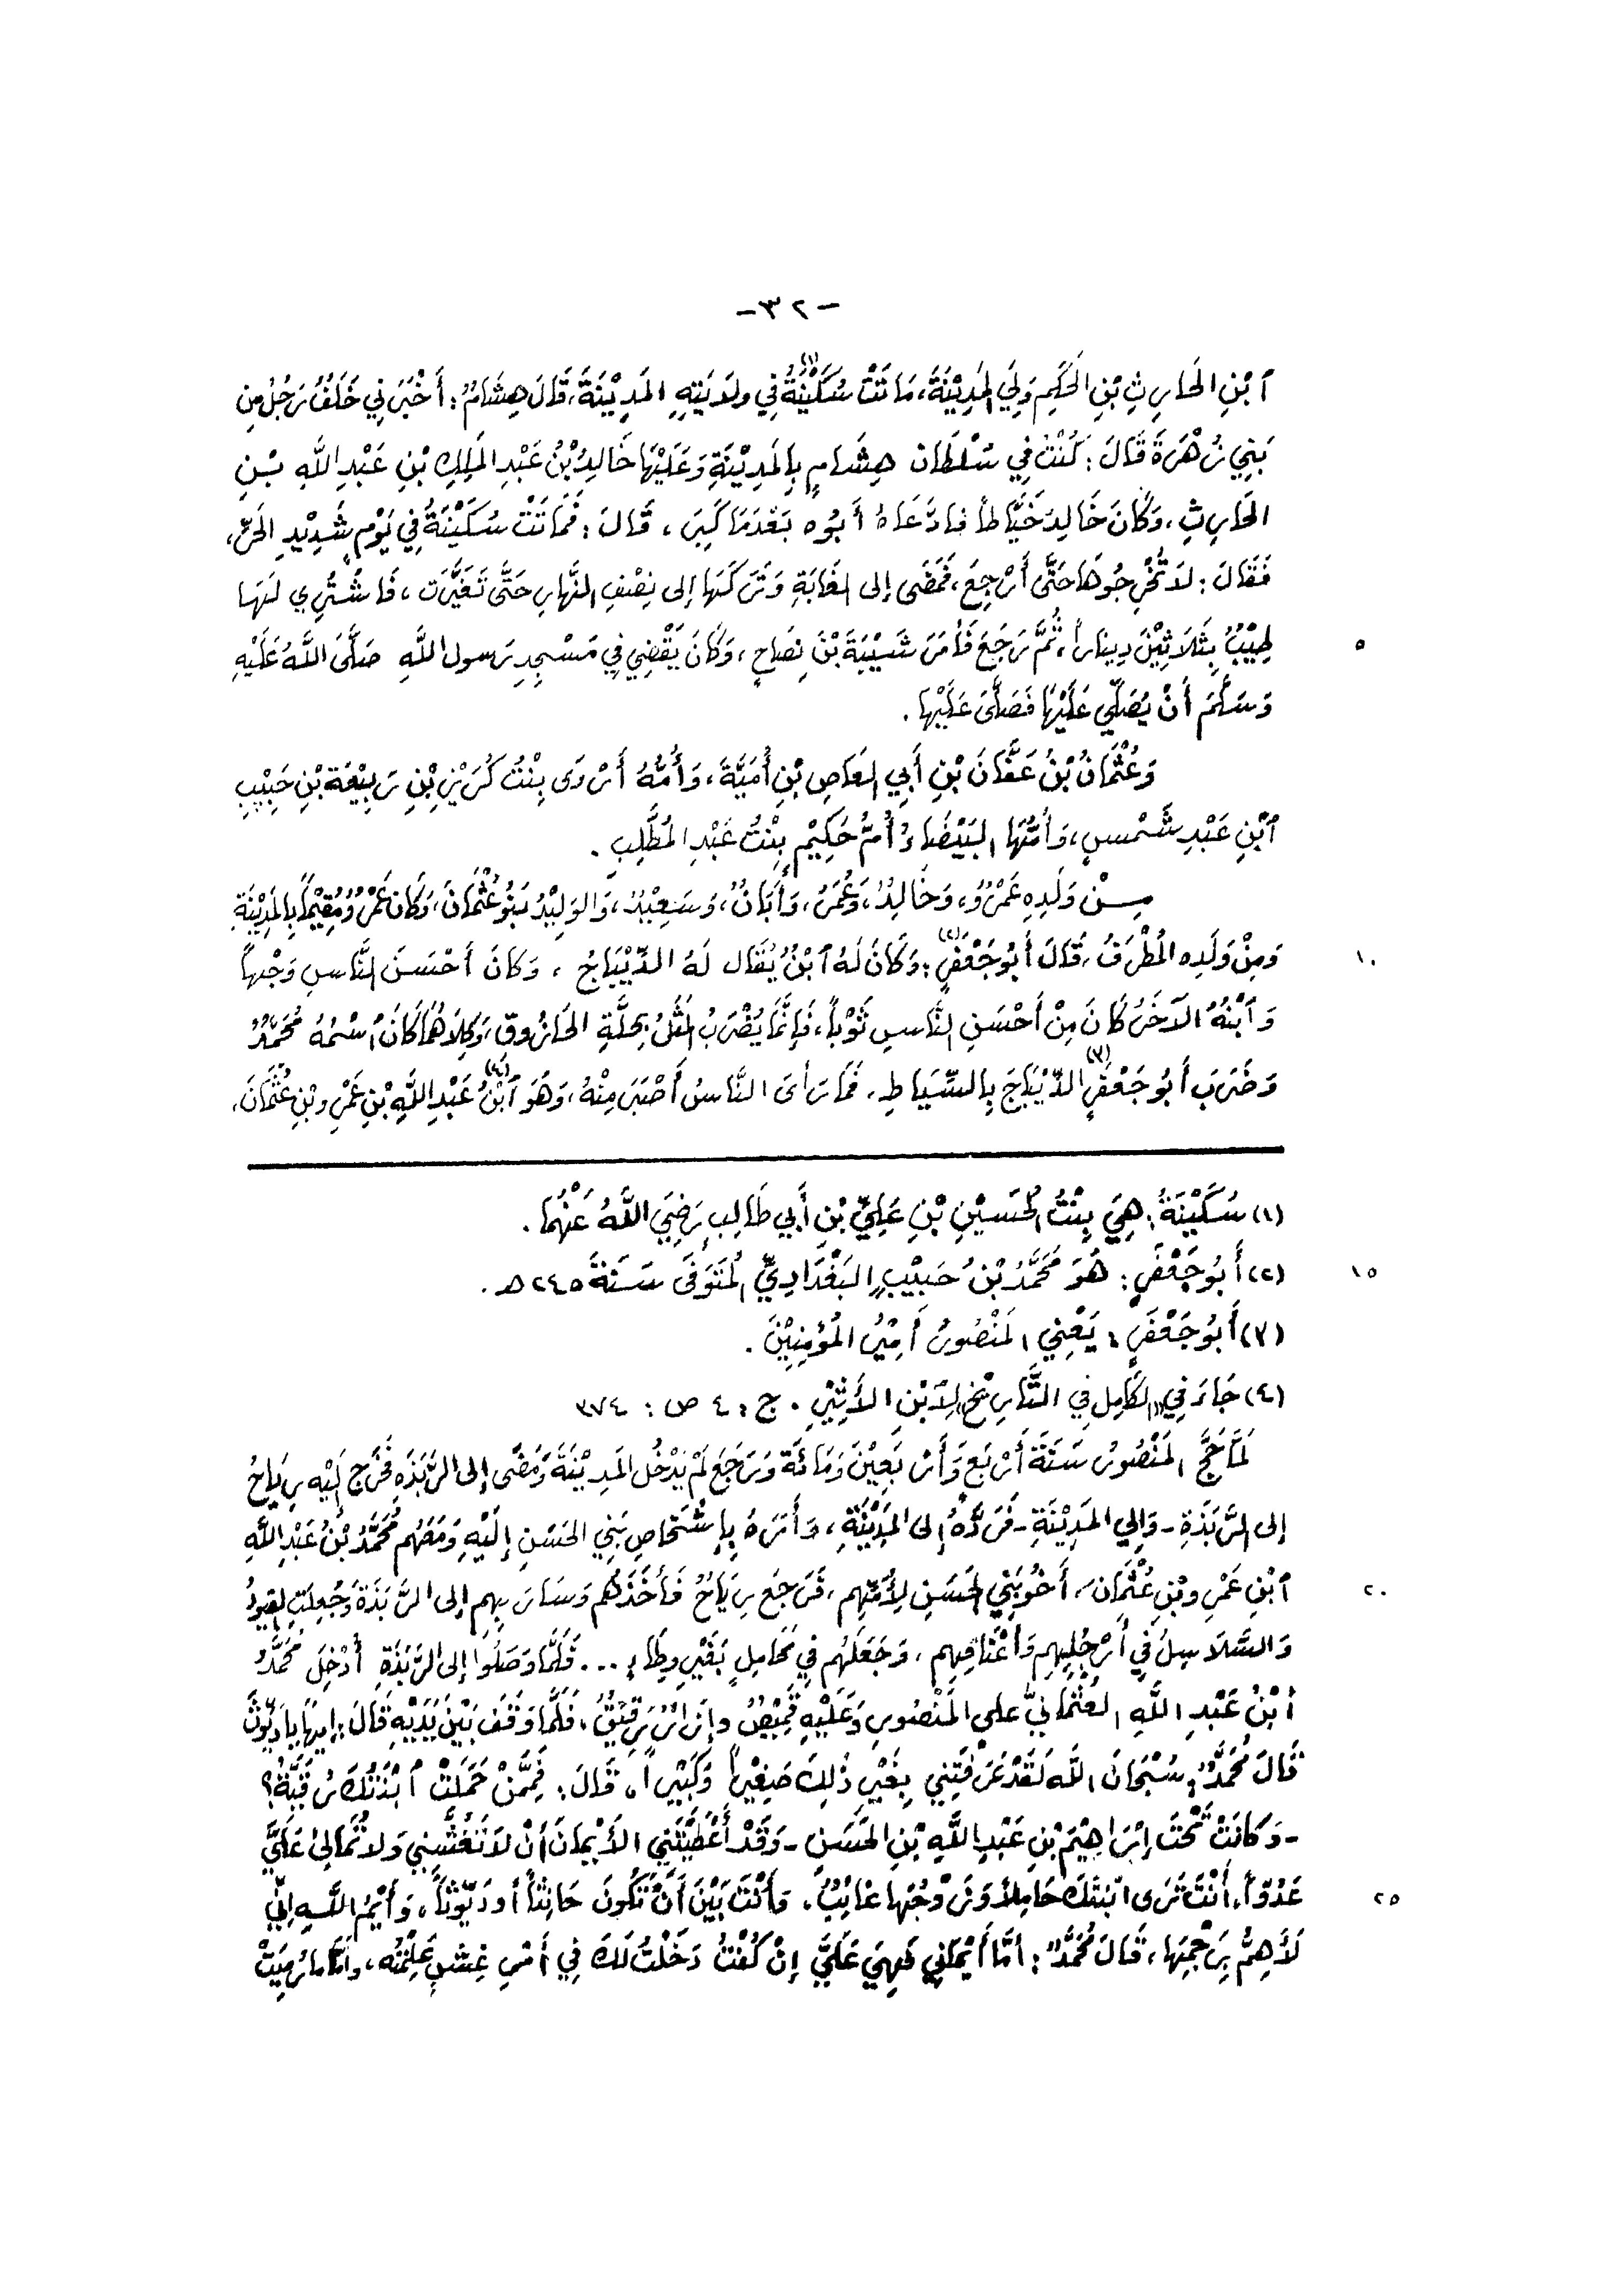 -٣٢-
ٱبْنِ الحَارِثِ بْنِ الحَكَمِ وَلِيَ المَدِيْنَةَ، مَاتَتْ سُكَيْنَةُ (١) فِي ولَايَتِهِ المَدِيْنَةَ، قَالَ هِشَامُ: أَخْبَرَنِي خَلَفُ رَجُلٌ مِن
بَنِي زُهْرَةَ قَالَ: كُنْتُ فِي سُلْطَان هِشَامٍ بِالمَدِيْنَةِ وَعَلَيْهَا خَالِدُ بْنُ عَبْدِ المَلِكِ بْنِ عَبْدِ اللَّهِ بْنِ
الحَارِثِ، وَكَانَ خَالِدٌ خَيَّاطاً فادَّعَاهُ أَبُوه بَعْدَمَا كَبِرَ، قَالَ: فَمَاتَتْ سُكَيْنَةُ فِي يَوْمٍ شَدِيْدِ الحَرِّ،
فَقَالَ: لَا تُخْرِجُوهَا حَتَّى أَرْجِعَ، فَمَضَى إلى الغَابَةِ وَتَرَكَهَا إلى نِصْفِ النَّهَارِ حَتَّى تَغَيَّرَت، فَاشْتُرِي لَهَا
طِيْبٌ بِثَلَاثِيْنَ دِينَاراً، ثُمَّ رَجَعَ فَأَمَرَ شَيْبَةَ بْنَ نِصَاحٍ، وَكَانَ يَقْضِي فِي مَسْجِدِ رَسولِ اللَّهِ صَلَّى اللَّهُ عَلَيْهِ
٥
وَسَلَّمَ أَنْ يُصَلِّيَ عَلَيْهَا فَصَلَّى عَلَيْهَا.
وَعُثْمَانُ بْنُ عَفَّانَ بْنِ أَبِي العَاصِ بْنِ أُمَيَّةَ، وَأُمُّهُ أَرْوَى بِنْتُ كُرَيْزِ بْنِ رَبِيْعَةَ بْنِ حَبِيْبِ
ٱبْنِ عَبْدِ شَمْسٍ، وَأُمُّهَا البَيْضَاءُ أُمُّ حَكِيْمٍ بِنْتُ عَبْدِ المُطَّلِبِ.
مِنْ وَلَدِهِ عَمْرٌو، وَخَالِدٌ، وَعُمَرُ، وَأَبَانُ، وَسَعِيْدٌ، وَالوَلِيْدُ بَنُو عُثْمَانَ، وَكَانَ عَمْرٌو مُقِيْمًا بِالمَدِيْنَةِ
وَمِنْ وَلَدِهِ المُطْرَفُ، قَالَ أَبُو جَعْفَرٍ (٢): وَكَانَ لَهُ ٱبْنٌ يُقَال لَهُ الدِّيْبَاجُ، وَكَانَ أَحْسَنَ النَّاسِ وَجْهاً
١٠
وَٱبْنُهُ الآخَرُ كَانَ مِنْ أَحْسَنِ النَّاسِ ثَوْباً، فَإِنَّمَا يُضْرَبُ المَثَلُ بِحُلَّةِ الحَازُوقِ، وَكِلَاهُمَا كَانَ ٱسْمُهُ مُحَمَّدٌ
وَضَرَبَ أَبُو جَعْفَرٍ (٣) الدِّيْبَاجَ بِالسِّيَاطِ، فَمَا رَأَى النَّاسُ أَصْبَرَ مِنْهُ، وَهُوَ ٱبْنُ (٤) عَبْدِ اللَّهِ بْنِ عَمْرِو بْنِ عُثْمَانَ،
(١) سُكَيْنَةُ: هِيَ بِنْتُ الحُسَيْنِ بْنِ عَلِيِّ بْنِ أَبِي طَالِبٍ رَضِيَ اللَّهُ عَنْهُمَا.
(٢) أَبُو جَعْفَرٍ: هُوَ مُحَمَّدُ بْنُ حَبِيْبٍ البَغْدَادِيِّ المُتَوَفَّى سَنَةَ ٢٤٥ هـ.
١٥
(٣) أَبُو جَعْفَرٍ: يَعْنِي المَنْصُورَ أَمِيْرُ المُؤمِنِيْنَ.
(٤) جَاءَ فِي «الكَامِلِ فِي التَّارِيْخِ» لِابْنِ الأَثِيْرِ. ج: ٤ ص: ٣٧٤
لَمَّا حَجَّ المَنْصُورُ سَنَةَ أَرْبَعَ وَأَرْبَعِيْنَ وَمَائَة وَرَجَعَ لَمْ يَدْخُل المَدِيْنَةَ وَمَضَى إلى الرَّبَذَةِ فَخَرَج إلَيْهِ رِيَاحُ
إلى الرَّبَذَةِ - وَالِي المَدِيْنَةِ - فَرَدَّهُ إلى المَدِيْنَةِ، وَأَمَرَهُ بِإِشْخَاصِ بَنِي الحَسَنِ إِلَيْهِ وَمَعَهُم مُحَمَّدُ بْنُ عَبْدِ اللَّهِ
ٱبْنِ عَمْرِو بْنِ عُثْمَانَ، أَخُو بَنِي الحَسَنِ لِأُمِّهِم، فَرَجَعَ رِيَاحُ فَأَخَذَهُم وَسَارَ بِهِم إلى الرَّبَذَةِ وَجُعِلَتِ القيودُ
٢٠
وَالسَّلاسِلُ فِي أَرْجُلِهِم وَأَعْنَاقِهِم، وَجَعَلَهُم فِي مَحَامِلٍ بَغَيْرِ وِطَاءٍ... فَلَمَّا وَصَلُوا إلى الرَّبَذَةِ أُدْخِلَ مُحَمَّدُ
ٱبْنُ عَبْدِ اللَّهِ العثْمَانِيُّ على المَنْصُورِ وَعَلَيْهِ قَمِيْصٌ وإِزَارٌ رَقِيْقٌ، فَلَمَّا وَقَفَ بَيْنَ يَدَيْهِ قَالَ: إيهاً يا دَيّوثُ
قَالَ مُحَمَّدٌ: سُبْحَانَ اللَّه لَقَدْ عَرَفْتَنِي بِغَيْرِ ذٰلِكَ صَغِيْراً وَكَبِيْراً، قَالَ: فَمِمَّنْ حَمَلَتْ ٱبْنَتُكَ رُقَيَّةُ؟
- وَكَانَتْ تَحْتَ إِبْرَاهِيْمَ بْنِ عَبْدِ اللَّهِ بْنِ الحَسَنِ - وَقَدْ أَعْطَيْتَنِي الأَيْمَانَ أَنْ لَا تَغُشَّنِي وَلا تُمَالِئَ عَلَيَّ
عَدُوّاً، أَنْتَ تَرَى ابْنَتَكَ حَامِلاً وَزَوْجُهَا غَائِبٌ، وَأَنْتَ بَيْنَ أَنْ تَكُونَ حَانِثاً أو دَيّوثاً، وَأَيْمُ اللَّهِ إِنِّي
٢٥
لَأَهِمُّ بِرَجْمِهَا، قَالَ مُحَمَّدٌ: أَمَّا أَيْمَانِي فَهِيَ عَلَيَّ إِنْ كُنْتُ دَخَلْتُ لَكَ فِي أَمْرِ غِشٍّ عَلِمْتُه، وأَمَّا مَا رَمَيْتَ